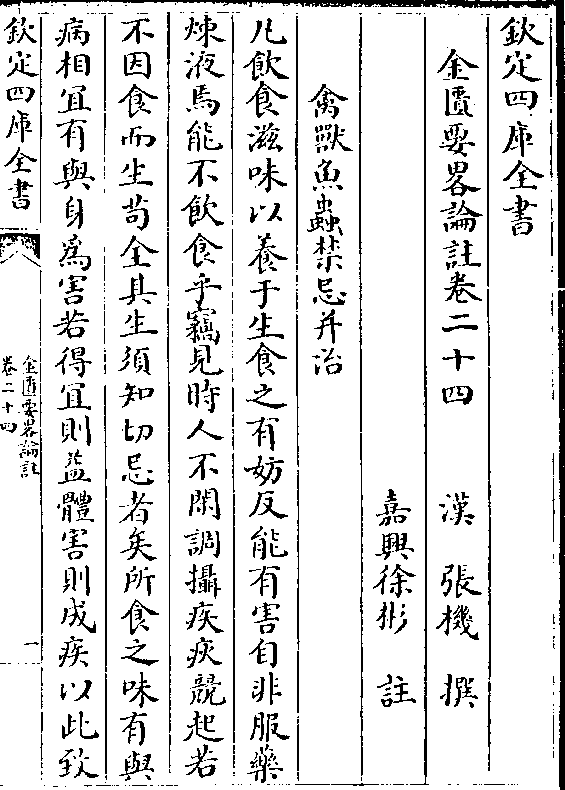 欽定四庫全書
金匱要畧論註卷二十四
漢 張機 撰
嘉興徐彬 註
禽獸魚蟲禁忌并治
凡飲食滋味以養于生食之有妨反能有害自非服藥
煉液焉能不飲食乎竊見時人不閑調攝疾疢競起若
不因食而生苟全其生須知切忌者矣所食之味有與
病相宜有與身為害若得宜則益體害則成疾以此致
欽定四庫全書
金匱要畧論註
卷二十四
一